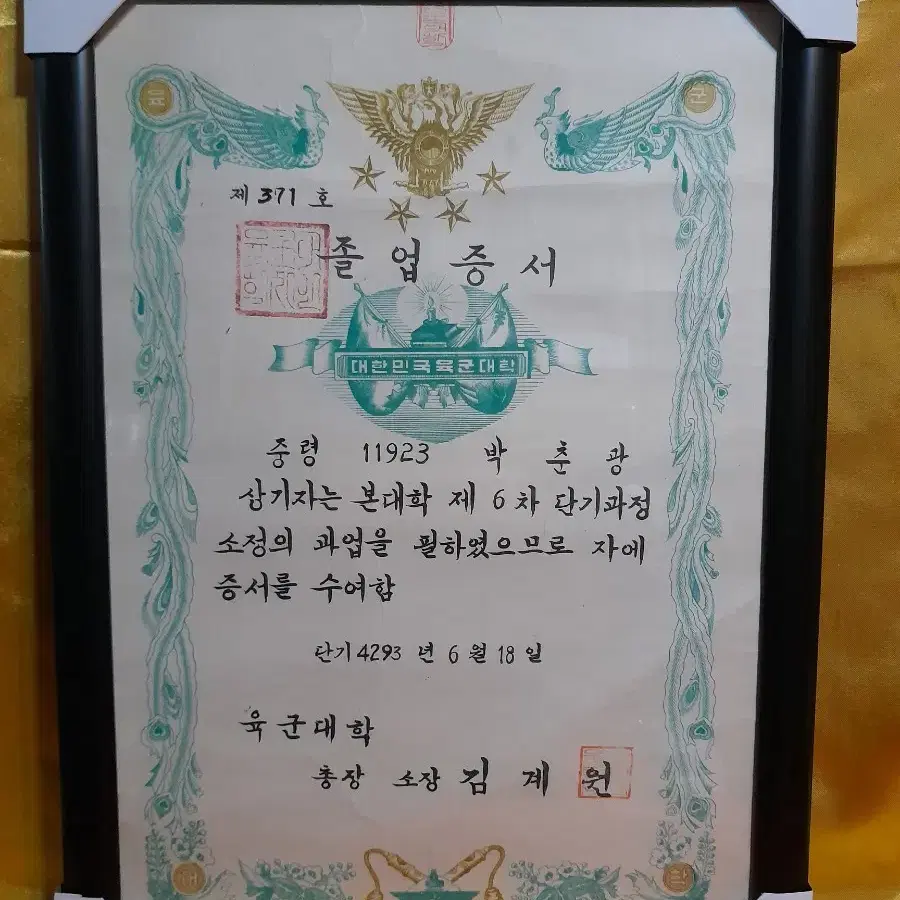 육
군
제 371 호
졸업증서
대한민국육군대학
중령 11923 박춘광
상기자는 본대학 제 6 차 단기과정
소정의 과업을 필하였으므로 자에
증서를 수여함
단기 4293 년 6 월 18 일
육군대학
총장 소장 김계원
대
학